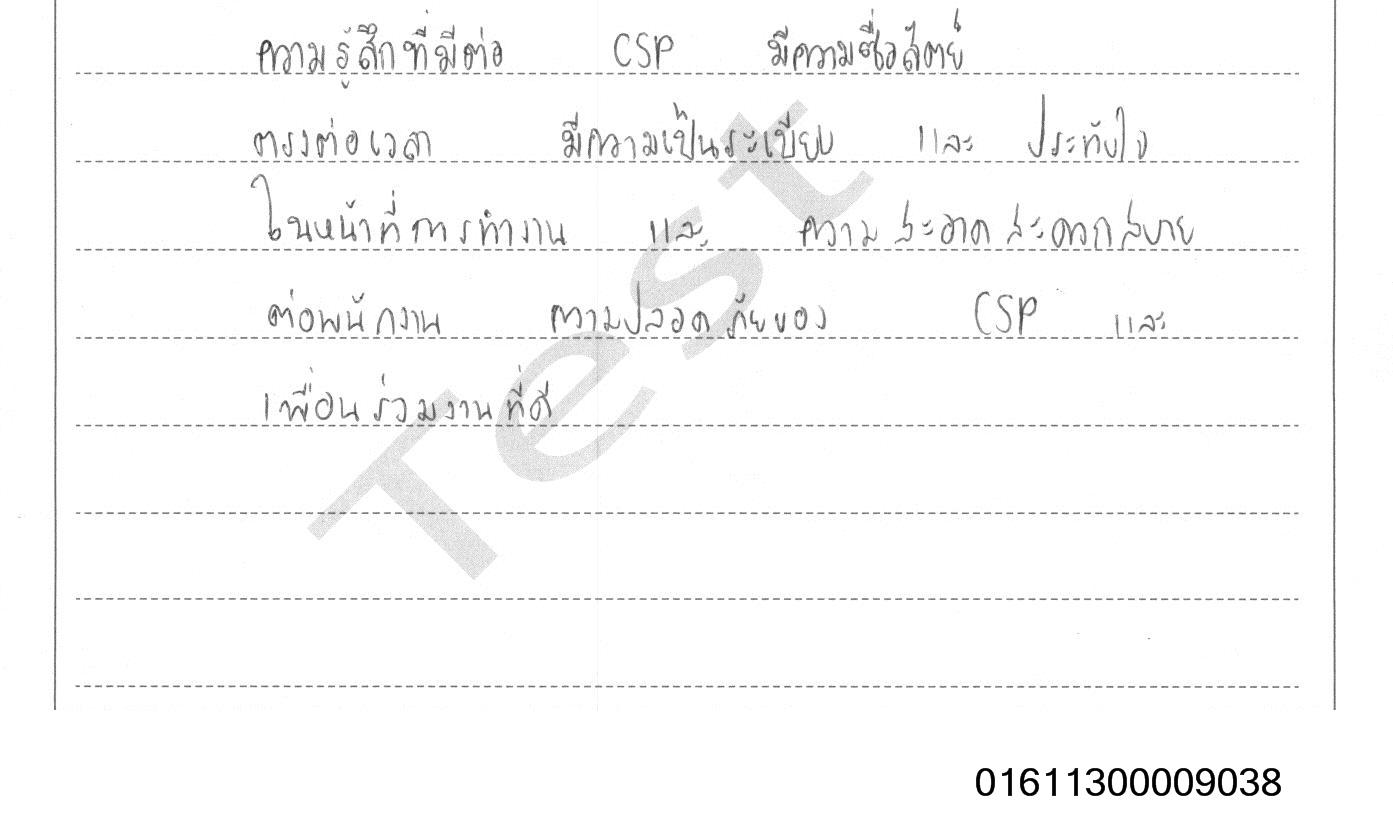 ความรู้สึกที่มีต่อ CSP มีความซื่อสัตย์
ตรงต่อเวลา มีความเป็นระเบียบ และ ประทับใจ
ในหน้าที่การทำงาน และ ความสะอาด สะดวกสบาย
ต่อพนักงาน ความปลอดภัยของ CSP และ
เพื่อนร่วมงานที่ดี
Test
01611300009038